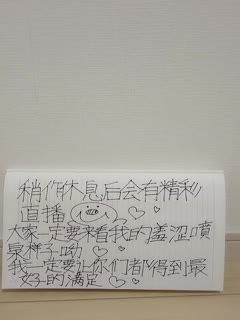 稍作休息后会有精彩
直播
大家一定要来看我的羞涩喷
泉样子呦
我一定要让你们都得到最
好的满足